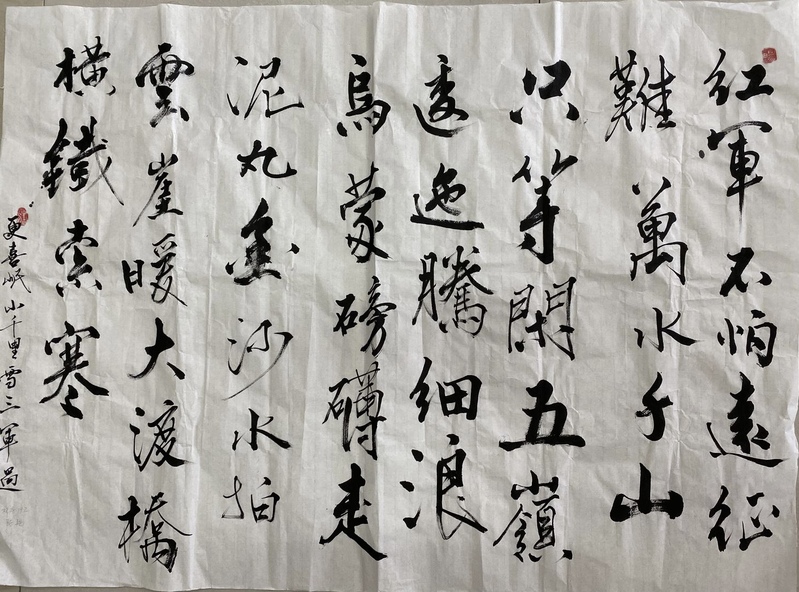 紅軍不怕遠征
難萬水千山
只等閑五嶺
逶迤騰細浪
烏蒙磅礴走
泥丸金沙水拍
雲崖暖大渡橋
橫鐵索寒
更喜岷山千里雪三軍過